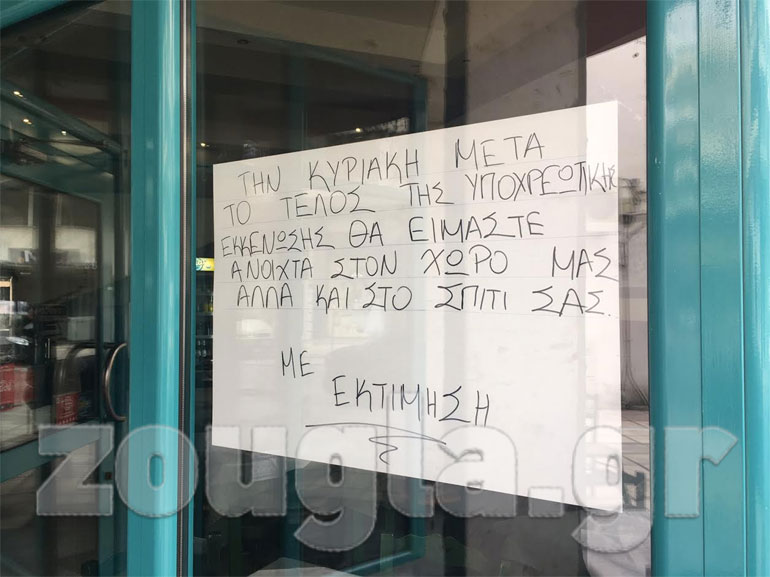 ΤΗΝ ΚΥΡΙΑΚΗ ΜΕΤΑ
ΤΟ ΤΕΛΟΣ ΤΗΣ ΥΠΟΧΡΕΩΤΙΚΗΣ
ΕΚΚΕΝΩΣΗΣ ΘΑ ΕΙΜΑΣΤΕ
ΑΝΟΙΧΤΑ ΣΤΟΝ ΧΩΡΟ ΜΑΣ
ΑΛΛΑ ΚΑΙ ΣΤΟ ΣΠΙΤΙ ΣΑΣ.
ΜΕ
ΕΚΤΙΜΗΣΗ
zougla.gr